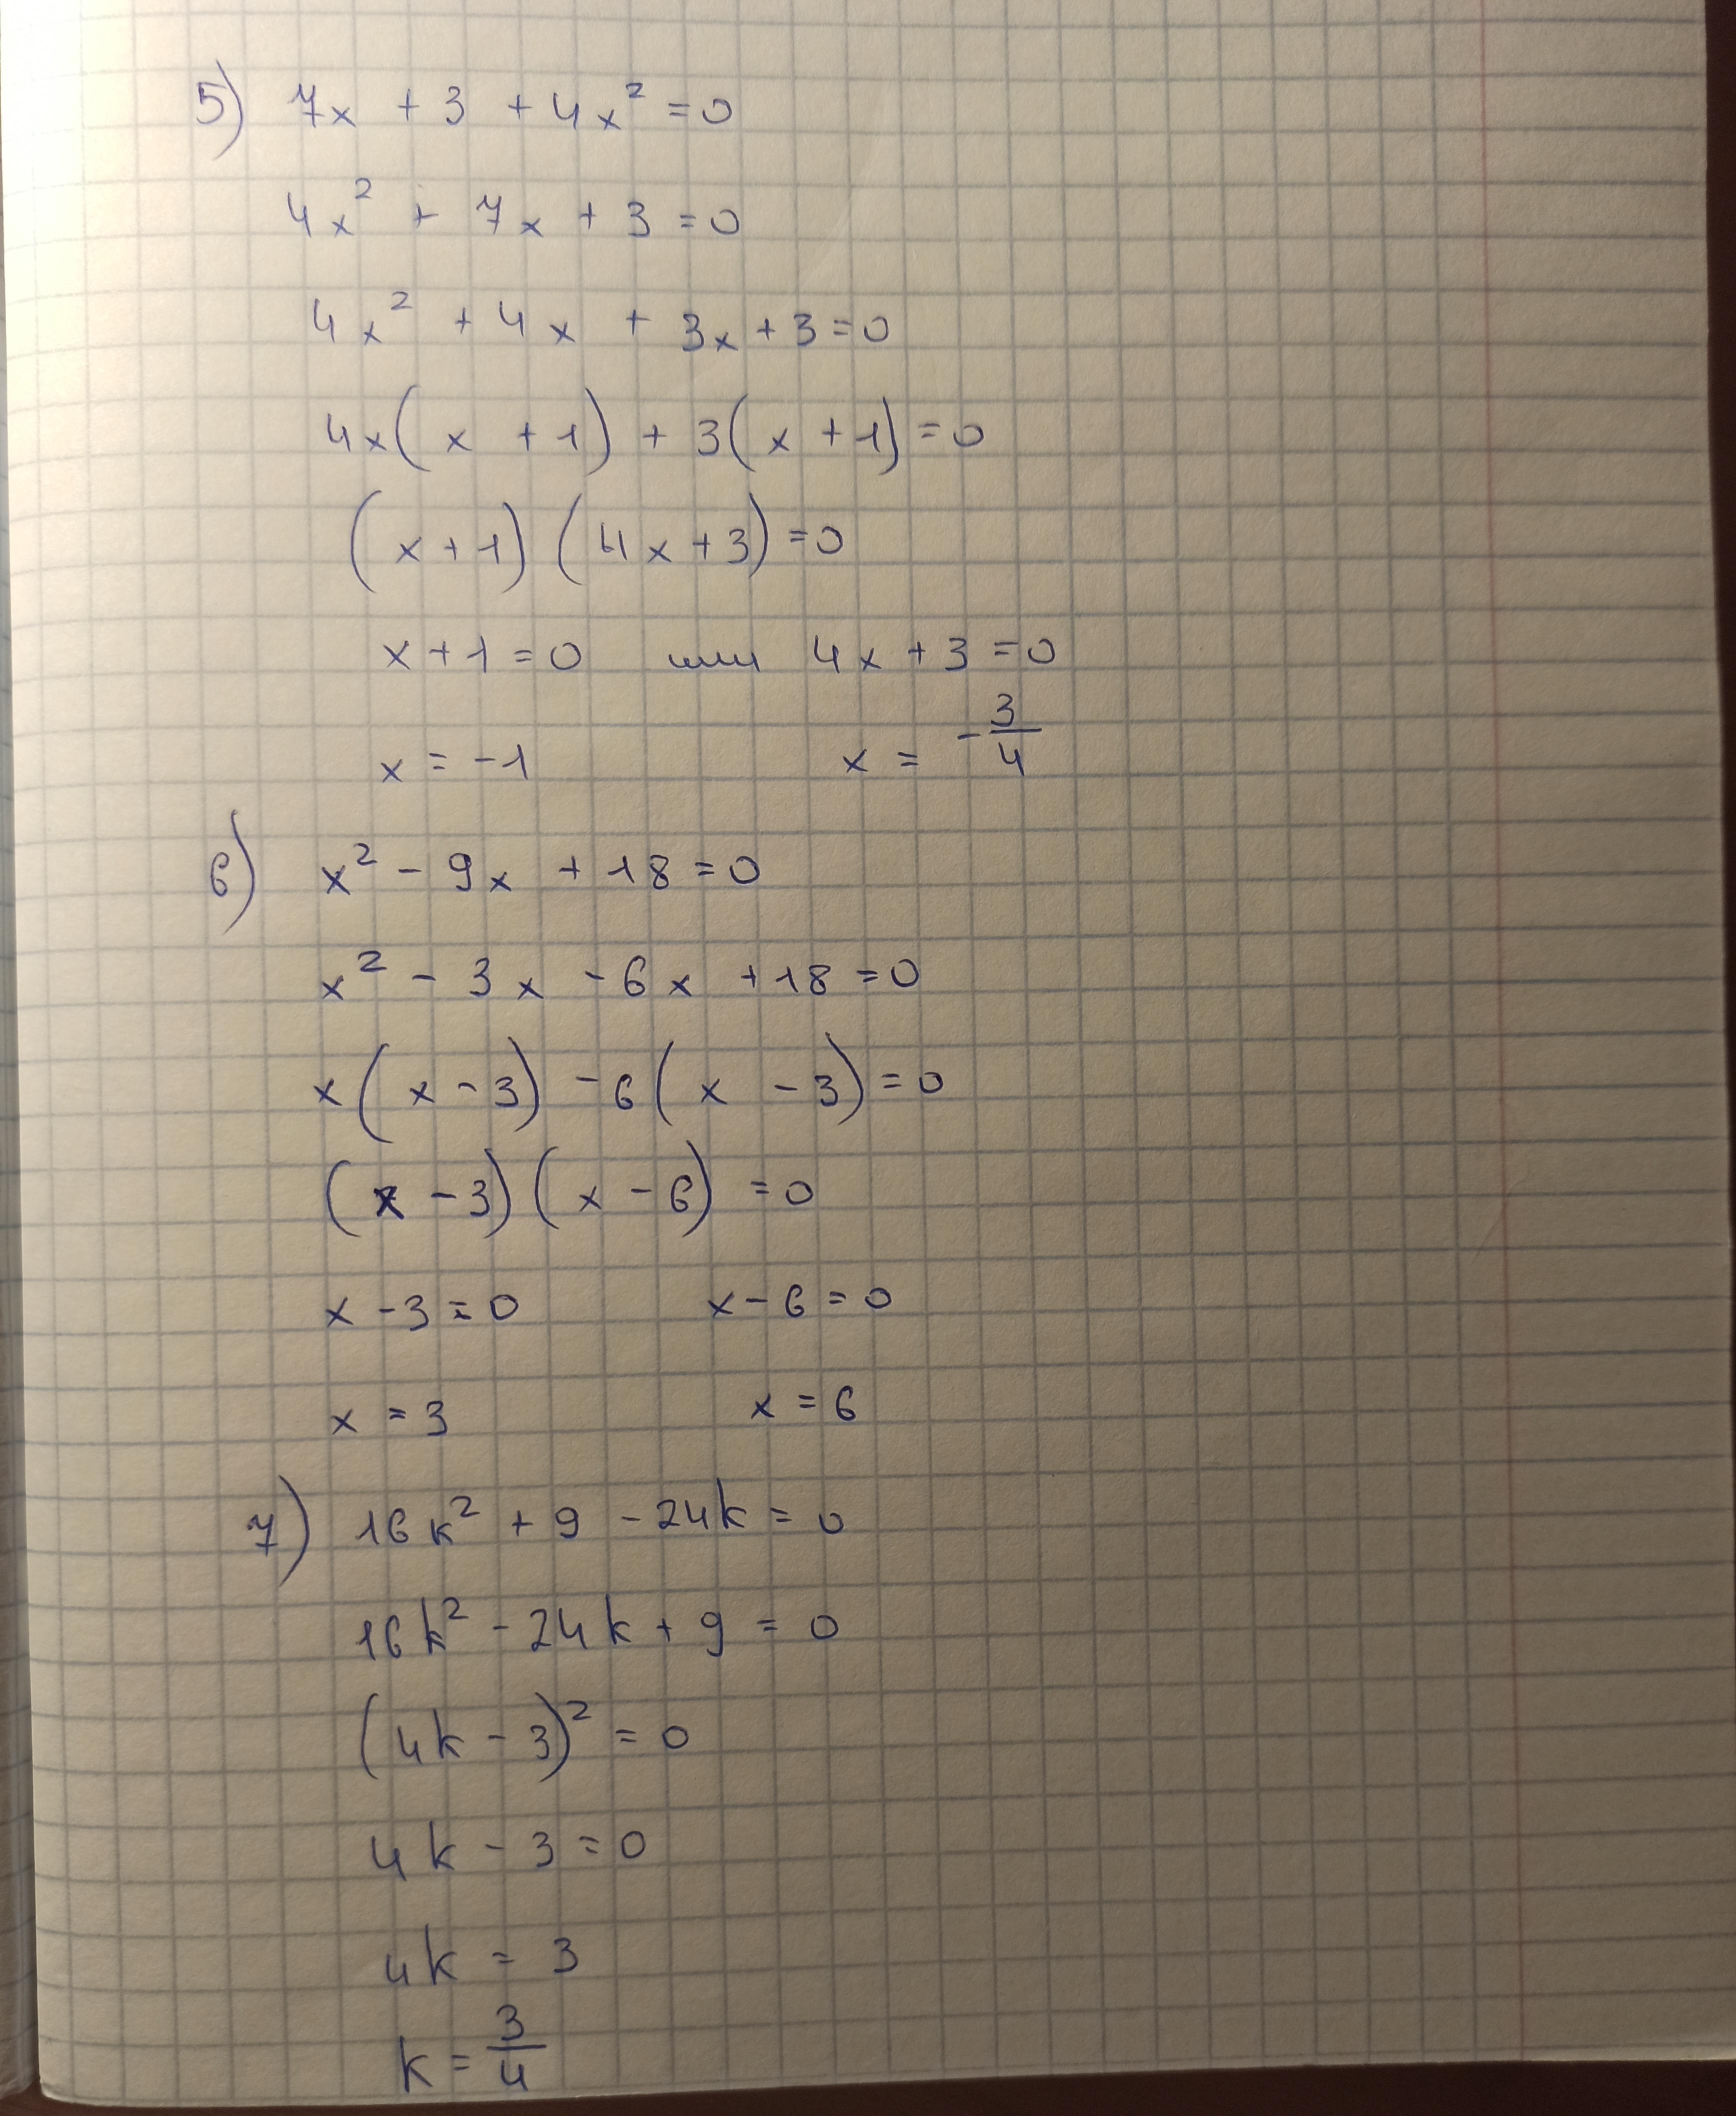 5) 7x + 3 + 4x² = 0
4x² + 7x + 3 = 0
4x² + 4x + 3x + 3 = 0
4x(x + 1) + 3(x + 1) = 0
(x + 1) (4x + 3) = 0
x + 1 = 0 или 4x + 3 = 0
x = -1 x = -3/4
6) x² - 9x + 18 = 0
x² - 3x - 6x + 18 = 0
x(x - 3) - 6(x - 3) = 0
(x - 3)(x - 6) = 0
x - 3 = 0 x - 6 = 0
x = 3 x = 6
7) 16k² + 9 - 24k = 0
16k² - 24k + 9 = 0
(4k - 3)² = 0
4k - 3 = 0
4k = 3
k = 3/4